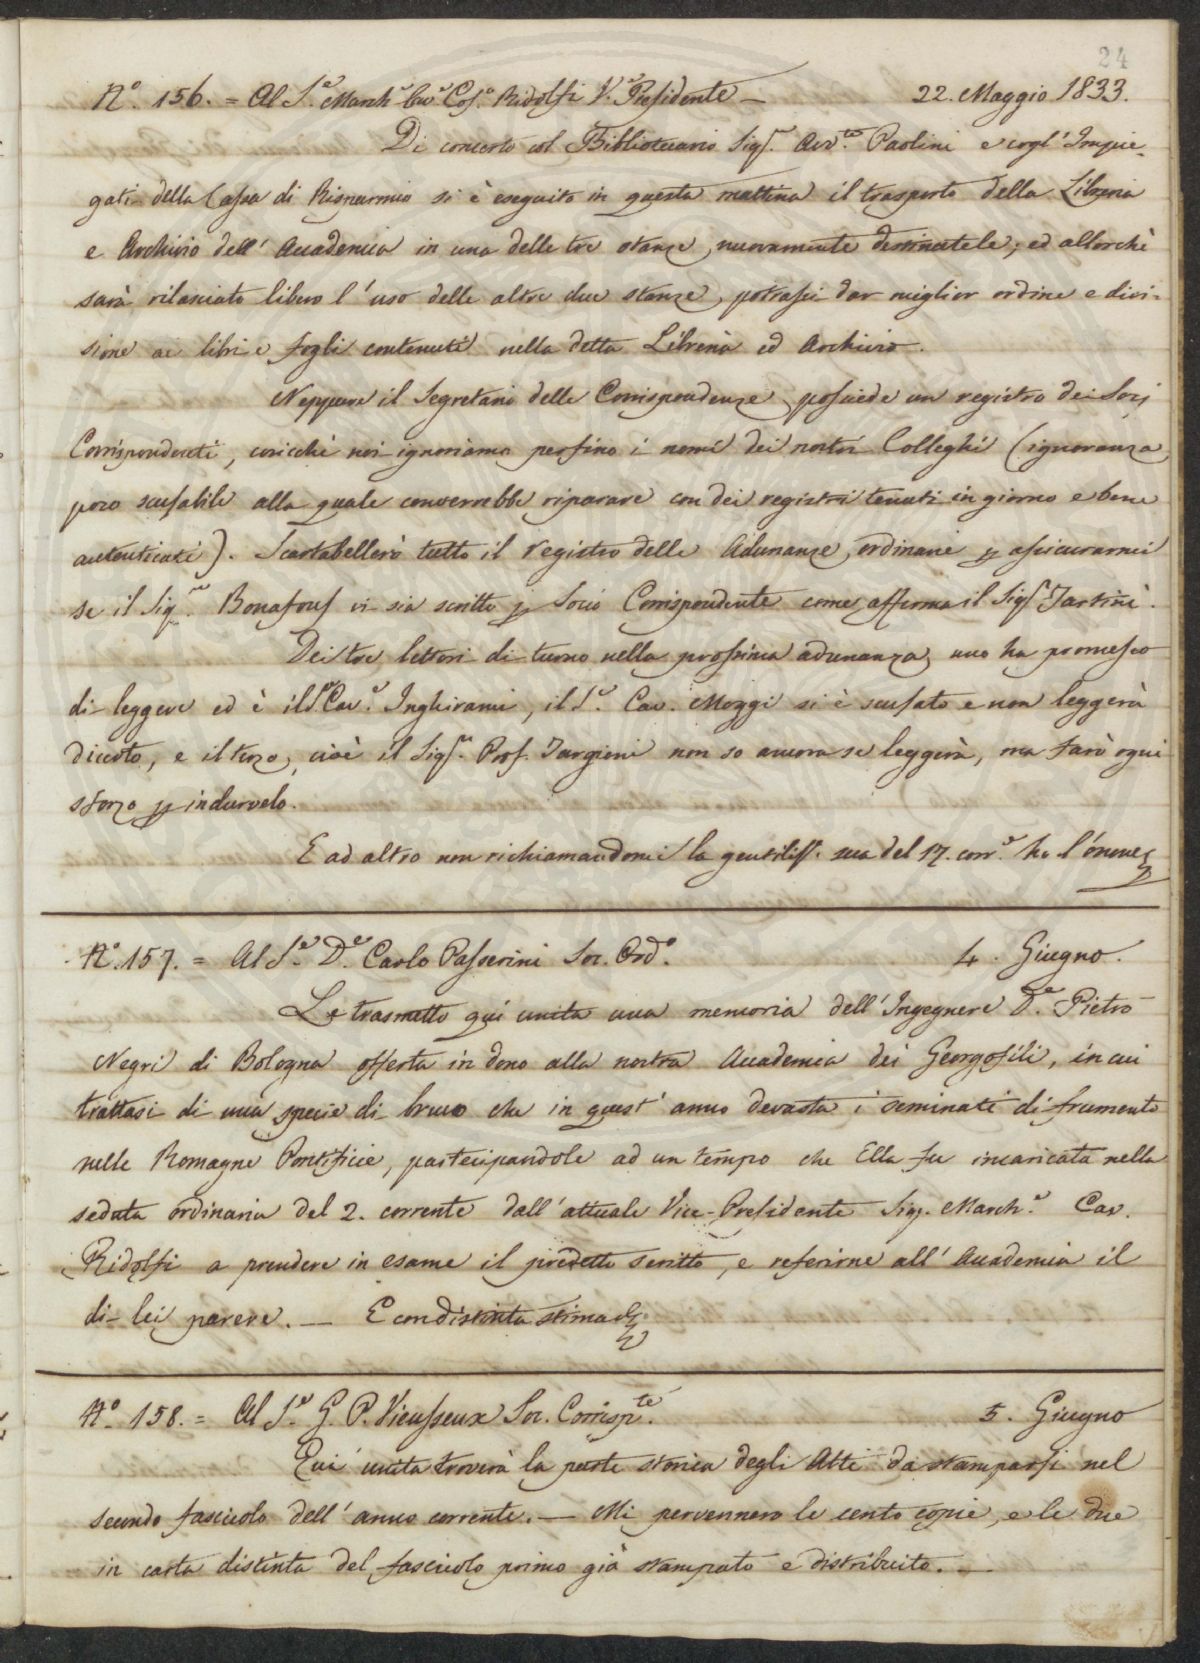 24
N.o 156. = Al S.e March.e Cav.e Cos.o Ridolfi V.e Presidente — 22. Maggio 1833.
Di concerto col Bibliotecario Sig.r Avv.to Paolini e cogl' Impie-
gati della Cassa di Risparmio si è eseguito in questa mattina il trasporto della Libreria
e Archivio dell' Accademia in una delle tre stanze nuovamente destinatele; ed allorchè
sarà rilasciato libero l' uso delle altre due stanze, potrassi dar miglior ordine e divi-
sione ai libri e fogli contenuti nella detta Libreria ed Archivio.
Neppure il Segretario delle Corrispondenze possiede un registro dei Socj
Corrispondenti, cosicchè noi ignoriamo persino i nomi dei nostri Colleghi (ignoranza
poco scusabile alla quale converrebbe riparare con dei registri tenuti in giorno e bene
autenticati). Scartabellerò tutto il registro delle Adunanze ordinarie p assicurarmi
se il Sig.re Bonafous vi sia scritto p Socio Corrispondente come afferma il Sig.r Tartini.
Dei tre lettori di turno nella prossima adunanza, uno ha promesso
di leggere ed è il S.r Cav.e Inghirami, il S.e Cav. Moggi si è scusato e non leggerà
dicerto, e il terzo, cioè il Sig.re Prof. Targioni non so ancora se leggerà, ma farò ogni
sforzo p indurvelo.
E ad altro non richiamandomi la gentiliss. sua del 17. corr.e ho l'onore
N.o 157. = Al S.e D.e Carlo Passerini Soc. Ord.o 4. Giugno.
Le trasmetto quì unita una memoria dell' Ingegnere D.e Pietro
Negri di Bologna offerta in dono alla nostra Accademia dei Georgofili, in cui
trattasi di una specie di bruco che in quest' anno devasta i seminati di frumento
nelle Romagne Pontificie, partecipandole ad un tempo che Ella fu incaricata nella
seduta ordinaria del 2. corrente dall' attuale Vice-Presidente Sig. March.e Cav.
Ridolfi a prendere in esame il predetto scritto, e referirne all' Accademia il
di lei parere. — E con distinta stima
N.o 158. = Al S.e G. P. Vieusseux Soc. Corrisp.te 5. Giugno
Qui unita troverà la parte storica degli Atti da stamparsi nel
secondo fascicolo dell' anno corrente. — Mi pervennero le cento copie, e le due
in carta distinta del fascicolo primo già stampato e distribuito. —